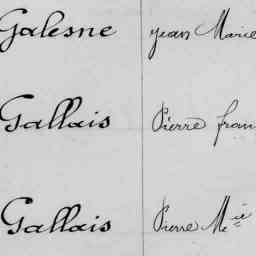 Galesne Jean Marie
Gallais Pierre fran
Gallais Pierre Mie